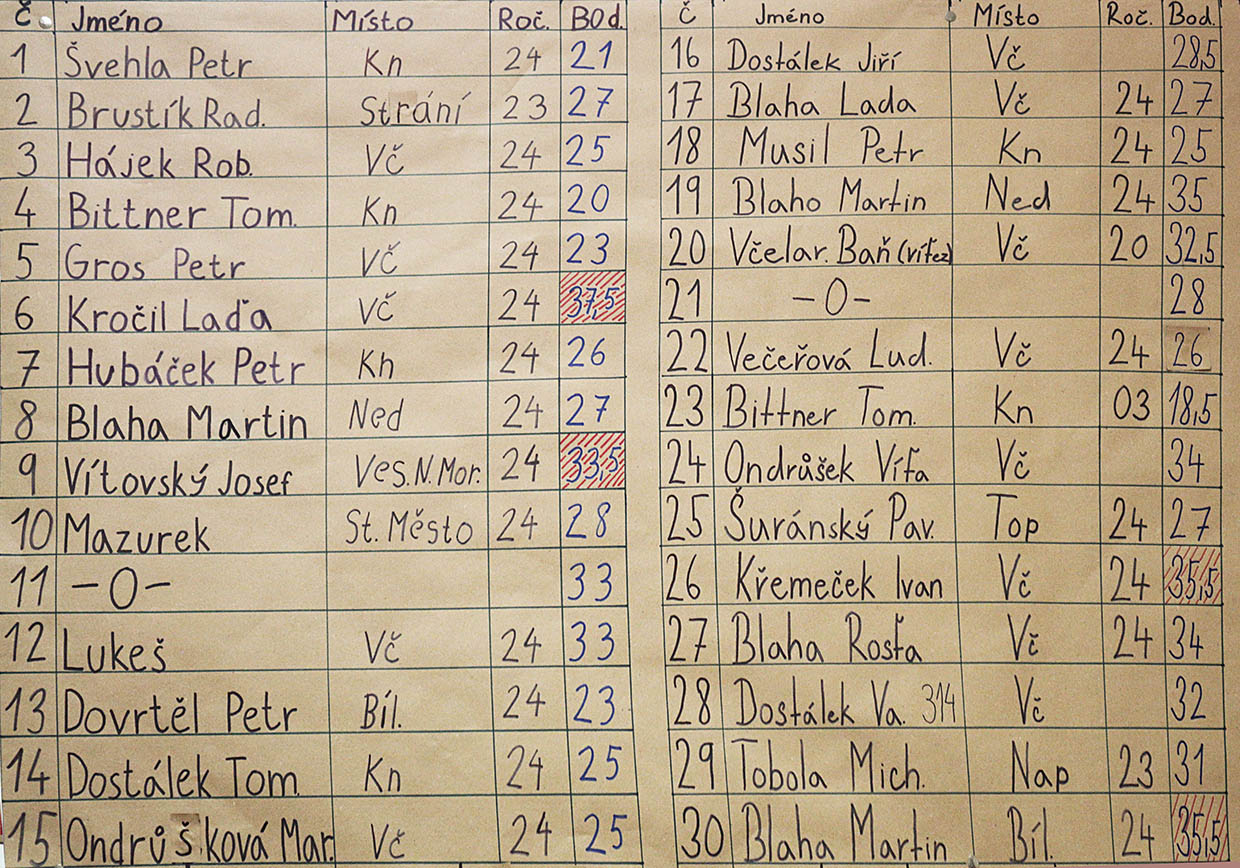 č Jméno Místo Roč. BOd.
1 Švehla Petr Kn 24 21
2 Brustík Rad. Strání 23 27
3 Hájek Rob. Vč 24 25
4 Bittner Tom. Kn 24 20
5 Gros Petr Vč 24 23
6 Kročil Laďa Vč 24 37,5
7 Hubáček Petr Kn 24 26
8 Blaha Martin Ned 24 27
9 Vítovský Josef Ves.N.Mor. 24 33,5
10 Mazurek St. Město 24 28
11 -O- 33
12 Lukeš Vč 24 33
13 Dovrtěl Petr Bíl. 24 23
14 Dostálek Tom. Kn 24 25
15 Ondrůšková Mar. Vč 24 25
č Jméno Místo Roč. Bod.
16 Dostálek Jiří Vč 28,5
17 Blaha Lada Vč 24 27
18 Musil Petr Kn 24 25
19 Blaho Martin Ned 24 35
20 Včelar. Baň (vítěz) Vč 20 32,5
21 -O- 28
22 Večeřová Lud. Vč 24 26
23 Bittner Tom. Kn 03 18,5
24 Ondrůšek Víťa Vč 34
25 Šuránský Pav. Top 24 27
26 Křemeček Ivan Vč 24 35,5
27 Blaha Rosťa Vč 24 34
28 Dostálek Va. 314 Vč 32
29 Tobola Mich. Nap 23 31
30 Blaha Martin Bíl. 24 35,5